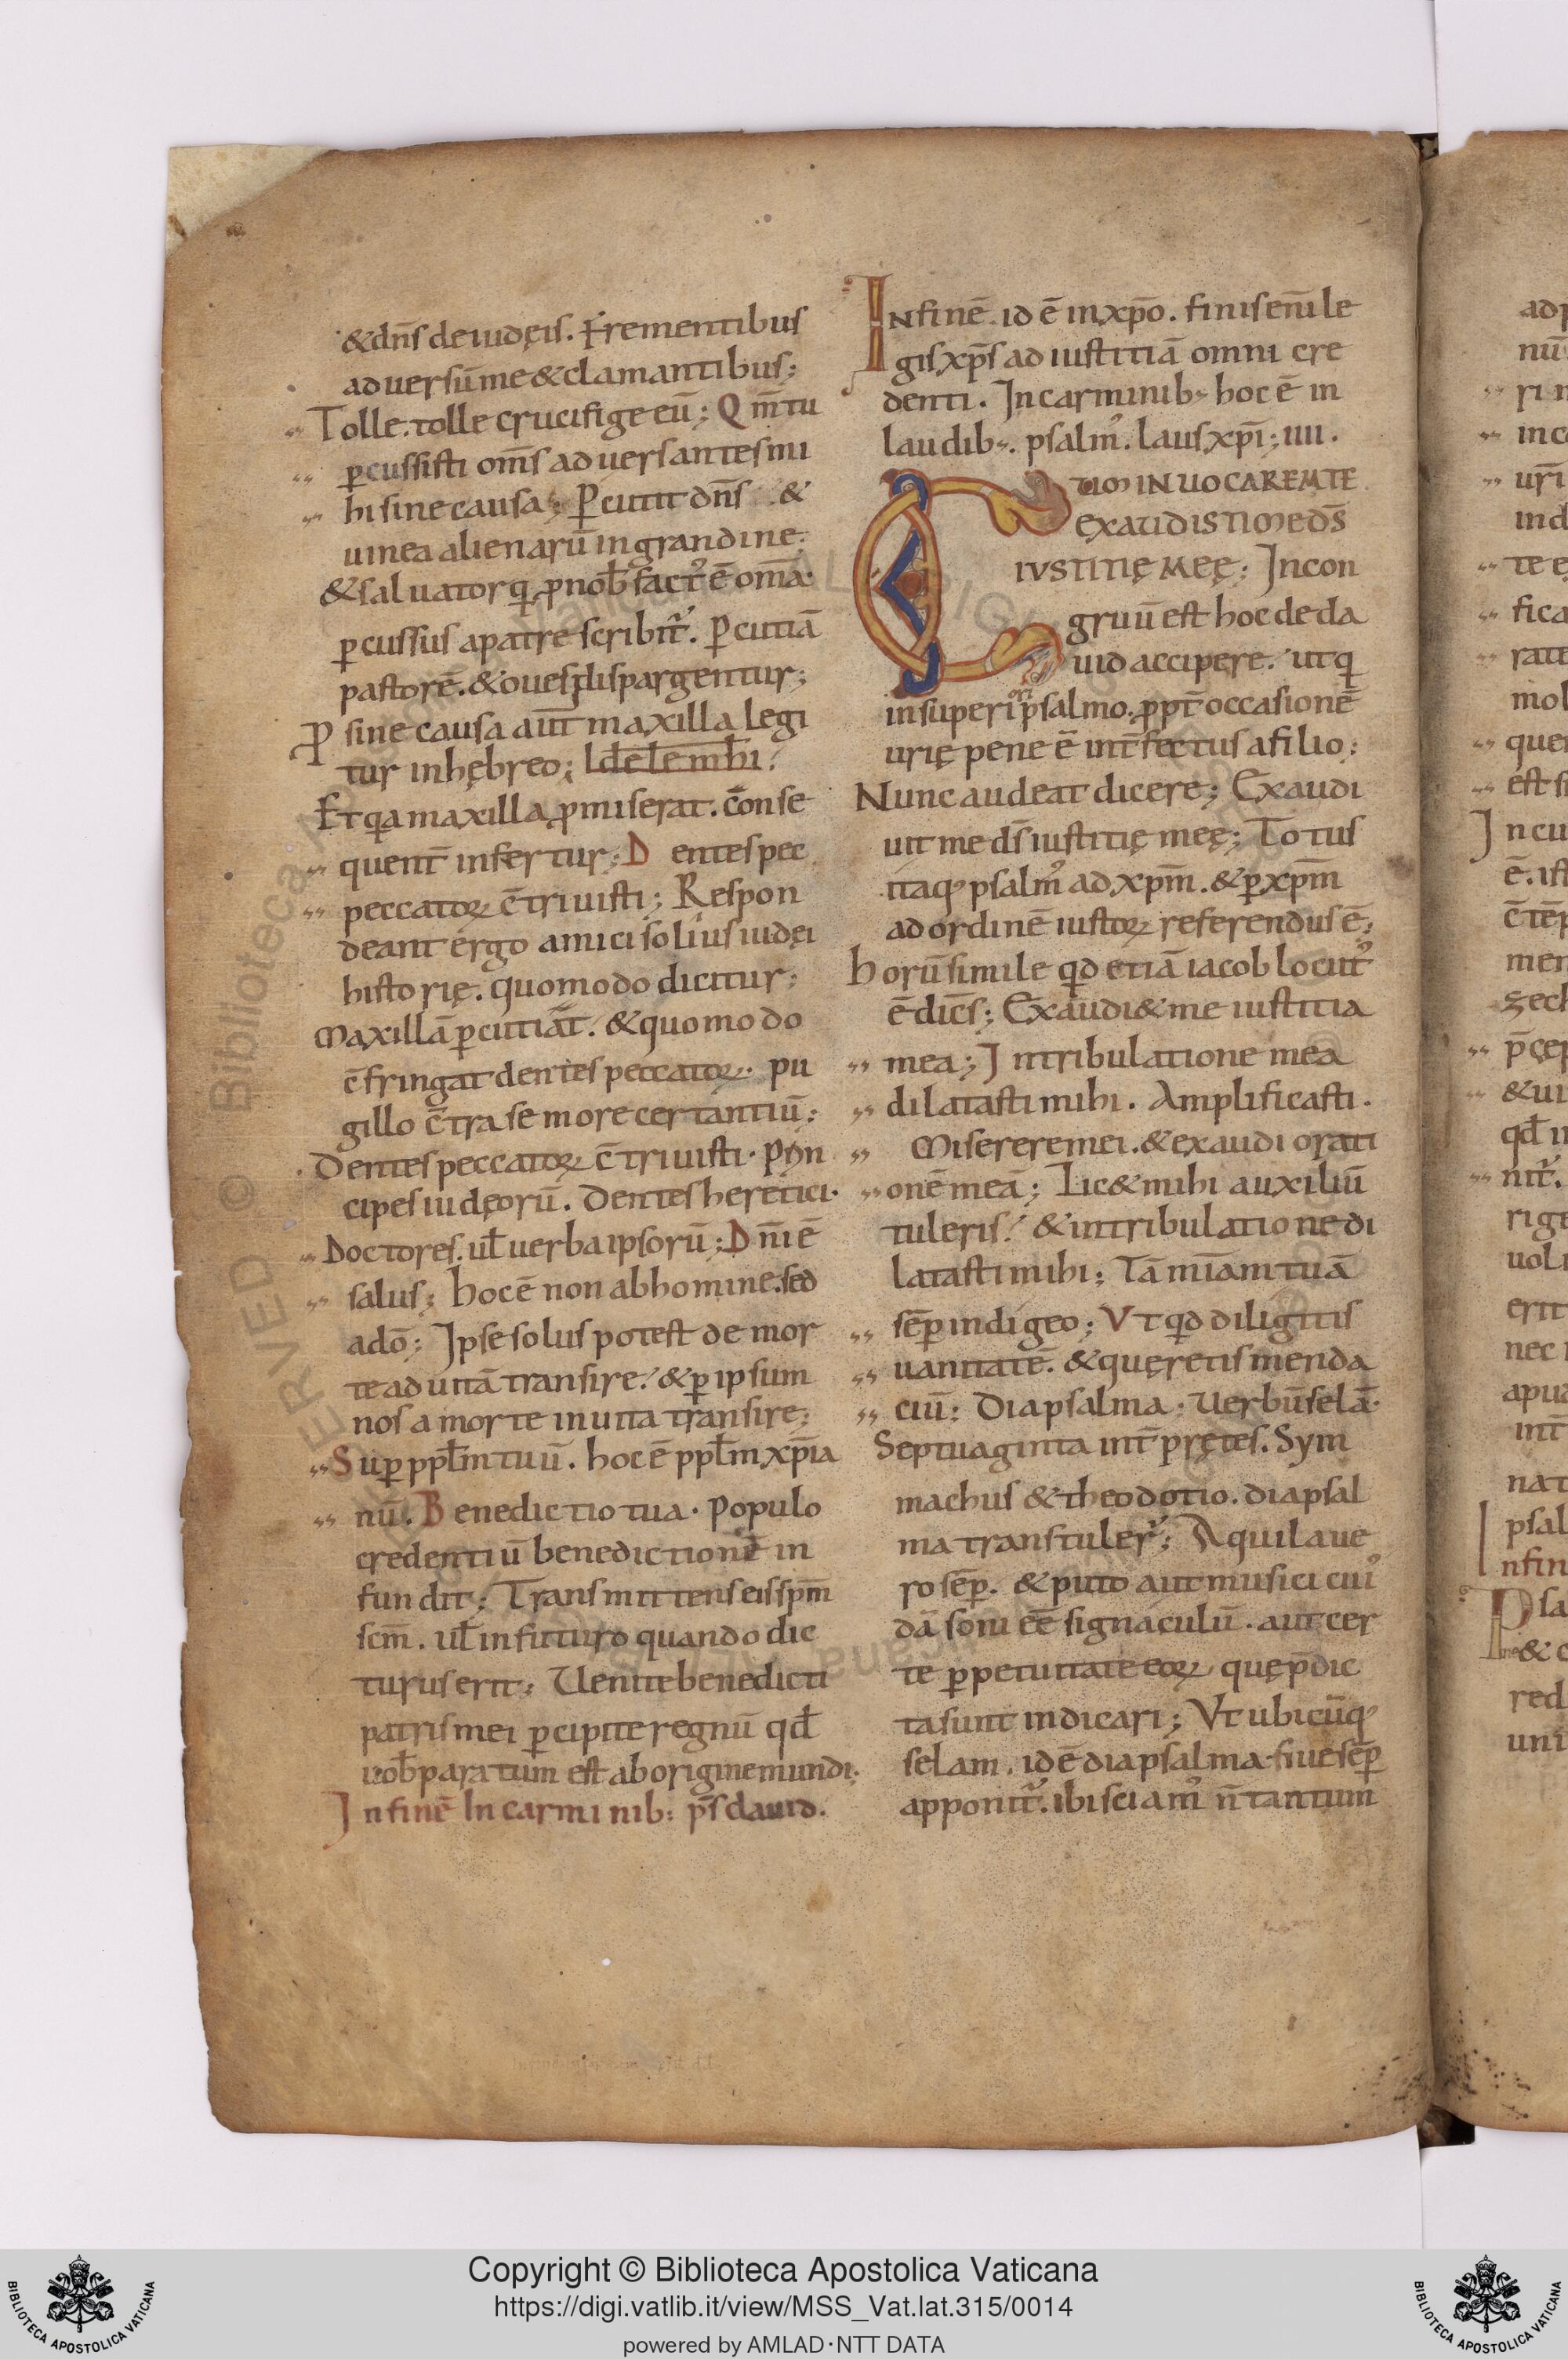 &dn̄s deiudęis. Frementibus
aduersū me &clamantibus;
Tolle. tolle crucifige eū; Qm̄ tu
ꝑcussisti om̄s aduersantes mi
hi sine causa; Ꝑcutit dn̄s &
uinea alienarū in grandine;
& saluator qui ꝓ nob̄ fact᾽ ē om̄a·
ꝑcussus apatre scribit᾽. Ꝑcutiā
pastorē. & oues dispargentur;
Ꝓ sine causa aut̄ maxilla legi
tur inhębreo; ldēlēmh̄i.
Et qa maxilla ꝓmiserat. c̄onse
quent̄ infertur; Dentes pec
peccatoꝝ c̄triuisti; Respon
deant ergo amici solius iudęi
historię. quomodo dicitur;
Maxillā ꝑcutiāt. & quomodo
c̄fringat dentes peccatoꝝ. pu
gillo c̄tra se more certantiū;
Dentes peccatoꝝ c̄triuisti. Prin
cipes iudęorū. Dentes heretici.
Doctores. ul̄ uerba ipsorū; Dn̄i ē
salus; Hoc ē non abhomine. sed
adō; Ipse solus potest de mor
te ad uitā transire. & ꝑ ipsum
nos a morte in uita transire;
Suꝑ ppl̄m tuū. hoc ē ppl̄m xp̄ia
nū. Benedictio tua. Populo
credentiū benedictionē in
fundit; Transmittens eis sp̄m
sc̄m. ul̄ infuturo quando dic
turus erit; Uenite benedicti
patris mei ꝑcipite regnū qd̄
uob̄ paratum est ab origine mundi;
In finē In carminib; ps̄ dauid.
In finē. id ē in xp̄o. finis enī le
gis xp̄s ad iustitiā omni cre
denti. In carminib; hoc ē in
laudib;. psalm᾽. laus xp̄i; IIII.
CUM INUOCAREM TE
EXAUDISTI ME DS̄
IVSTITIĘ MEĘ; Incon
gruū est hoc de da
uid accipere. ut qui
in superiori psalmo. ꝓpt̄ occasionē
urię pene ē int̄fectus afilio;
Nunc audeat dicere; Exaudi
uit me ds̄ iustitię meę; Totus
itaq; psalm᾽ ad xp̄m. & ꝑ xp̄m
ad ordinē iustoꝝ referendus ē;
Horū simile qd etiā iacob locut᾽
ē dic̄s; Exaudi& me iustitia
mea; In tribulatione mea
dilatasti mihi. Amplificasti.
Miserere mei. & exaudi orati
onē meā; Lic& mihi auxiliū
tuleris. & in tribulatione di
latasti mihi; Tā mīam tuā
sēꝑ indigeo; Vt qd diligitis
uanitatē. & quęretis menda
ciū; Diapsalma; Uerbū selā.
Septuaginta int̄pretes. Sym
machus & theodotio. diapsal
ma transtuler᾽; Aquila ue
ro sēꝑ. & puto aut musici cui᾽
dā soni ēē signaculū. aut cer
te ꝑpetuitate eoꝝ quę p̄dic
ta sunt indicari; Vt ubicūq;
selam. id ē diapsalma. siue sēꝑ
apponit᾽. ibi sciam᾽ n̄ tantum
Copyright © Biblioteca Apostolica Vaticana
https://digi.vatlib.it/view/MSS_Vat.lat.315/0014
powered by AMLAD·NTT DATA
BIBLIOTECA APOSTOLICA VATICANA
BIBLIOTECA APOSTOLICA VATICANA